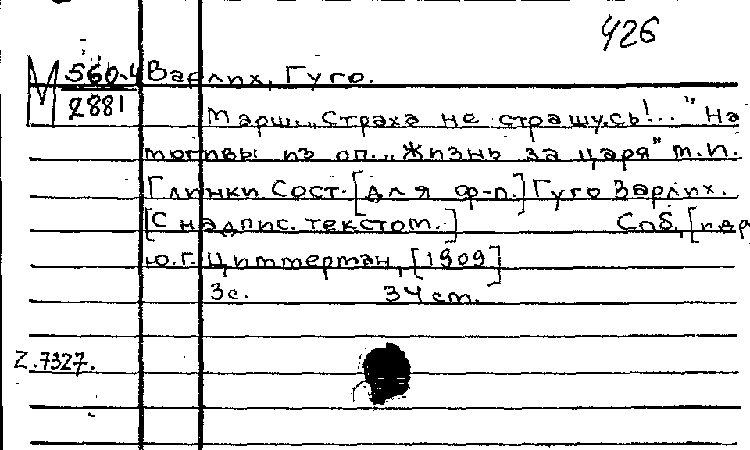 426
М 560.4 Варлих, Гуго.
2881
Марш „Страха не страшусь!..." На
мотивы из оп. „Жизнь за царя" М.И.
Глинки. Сост. [для ф-п.] Гуго Варлих.
[С надпис. текстом.] Спб, [изд.
Ю.Г. Циммерман, [1909]
3с. 34 см.
Z.7327.